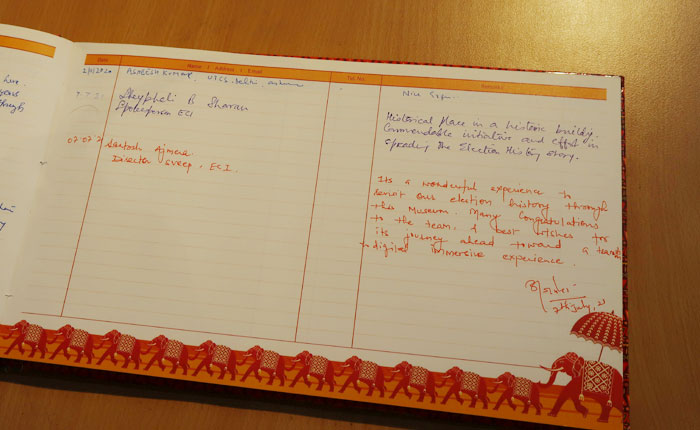 here.
through
Date
Name / Address / Email
Tel. No.
Remarks
ASHEESH KUMAR, UTCS, Delhi
Nice
7.7.21
B Sharan
Spokesperson ECI
Historical Place in a historic building.
Commendable initiative and effort in
spreading the Election History story.
07.07.2
Santosh Ajmera
Director Sveep, ECI.
Its a wonderful experience to
revisit our election history through
this Museum. Many Congratulations
to the team. & best wishes for
its journey ahead toward a
digital immersive experience.
7th July, 21